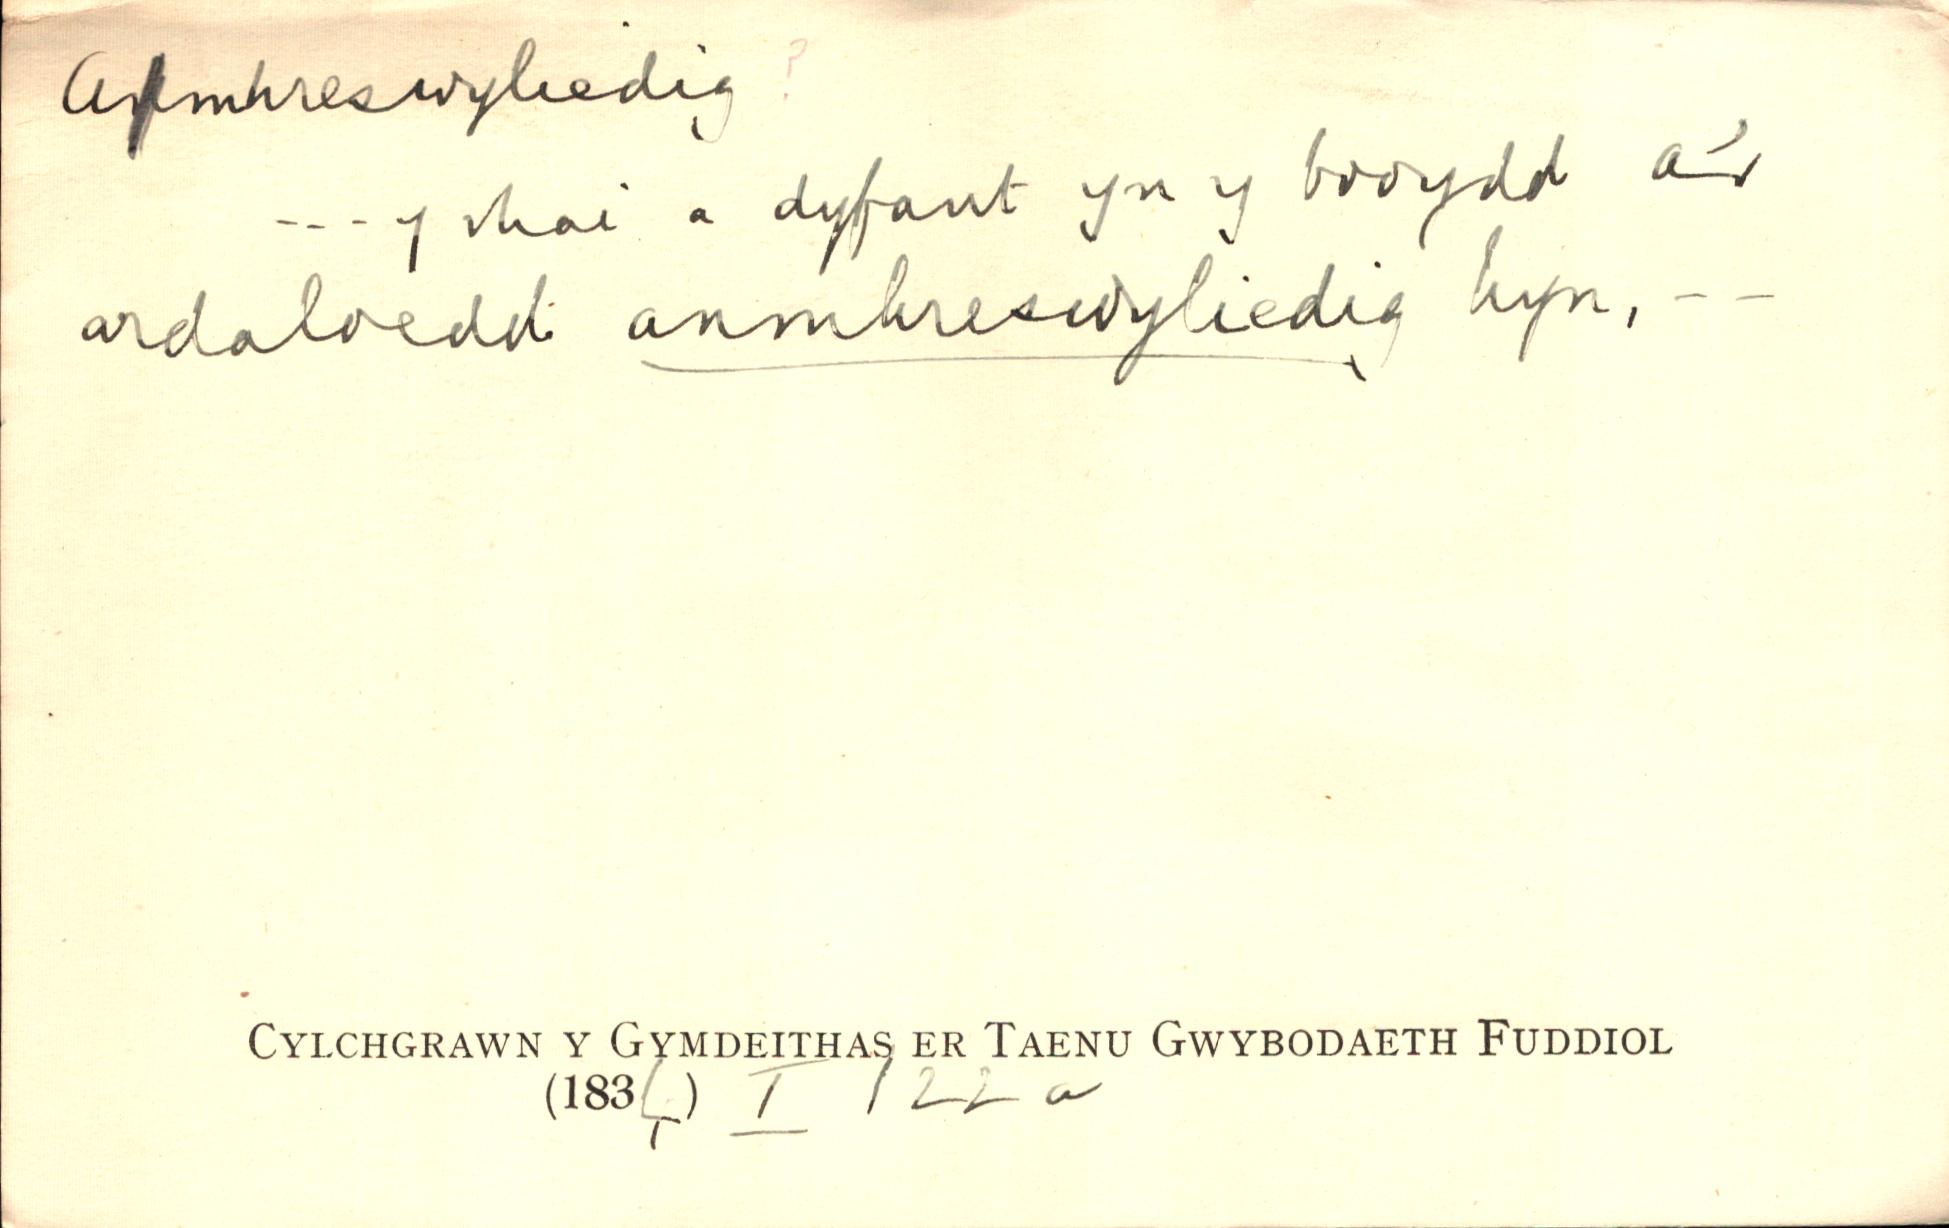 Anmhreswyliedig ?
--- y rhai a dyfant yn y broydd a'r
ardaloedd anmhreswyliedig hyn, --
CYLCHGRAWN Y GYMDEITHAS ER TAENU GWYBODAETH FUDDIOL
(1834) I 122 a